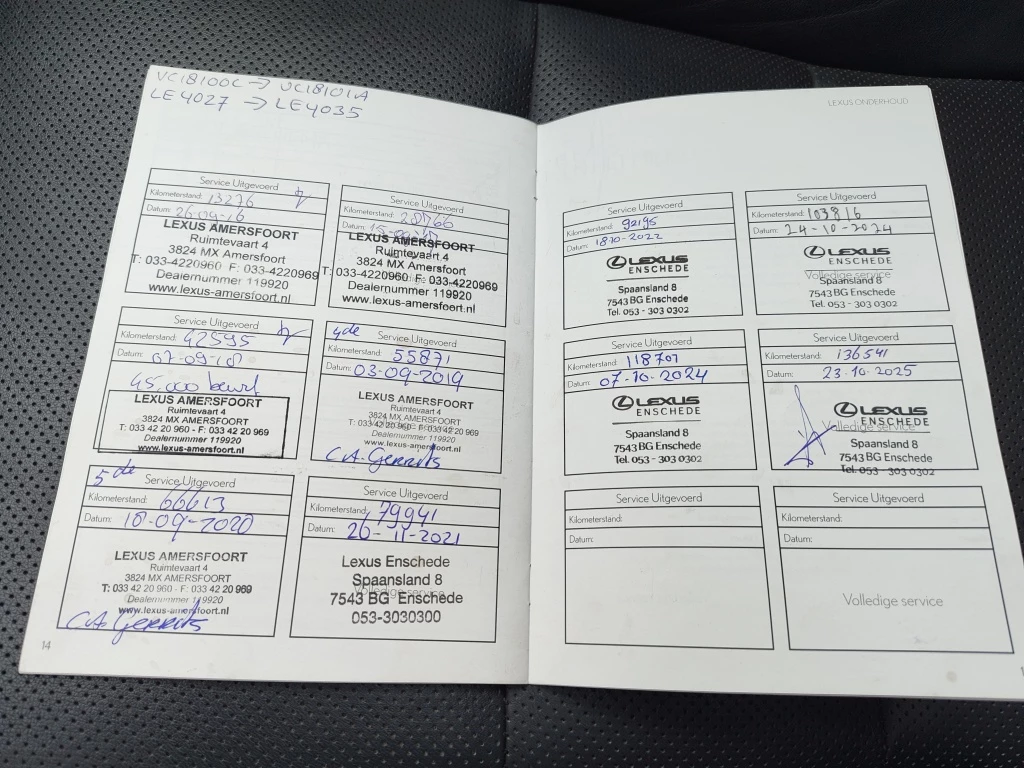 VC18100C → VC18101A
LE4027 → LE4035
Service Uitgevoerd
Kilometerstand: 13276
Datum: 26-09-16
LEXUS AMERSFOORT
Ruimtevaart 4
3824 MX Amersfoort
T: 033-4220960 F: 033-4220969
Dealernummer 119920
www.lexus-amersfoort.nl
Service Uitgevoerd
Kilometerstand:
Datum:
LEXUS AMERSFOORT
Ruimtevaart 4
3824 MX Amersfoort
T: 033-4220960 F: 033-4220969
Dealernummer 119920
www.lexus-amersfoort.nl
Service Uitgevoerd
Kilometerstand: 42595
Datum: 07-09-18
45.000 beurt
LEXUS AMERSFOORT
Ruimtevaart 4
3824 MX AMERSFOORT
T: 033 42 20 960 - F: 033 42 20 969
Dealernummer 119920
www.lexus-amersfoort.nl
4de Service Uitgevoerd
Kilometerstand: 55871
Datum: 03-09-2019
LEXUS AMERSFOORT
Ruimtevaart 4
3824 MX AMERSFOORT
T: 033 42 20 960 - F: 033 42 20 969
Dealernummer 119920
www.lexus-amersfoort.nl
C.A. Gerrits
5de Service Uitgevoerd
Kilometerstand: 66613
Datum: 18-09-2020
LEXUS AMERSFOORT
Ruimtevaart 4
3824 MX AMERSFOORT
T: 033 42 20 960 - F: 033 42 20 969
Dealernummer 119920
www.lexus-amersfoort.nl
C.A. Gerrits
Service Uitgevoerd
Kilometerstand: 79941
Datum: 26-11-2021
Lexus Enschede
Spaansland 8
Volledige service
7543 BG Enschede
053-3030300
14
LEXUS ONDERHOUD
Service Uitgevoerd
Kilometerstand: 92195
Datum: 18-10-2022
LEXUS
ENSCHEDE
Spaansland 8
7543 BG Enschede
Tel. 053 - 303 0302
Service Uitgevoerd
Kilometerstand: 103816
Datum: 24-10-2024
LEXUS
ENSCHEDE
Volledige service
Spaansland 8
7543 BG Enschede
Tel. 053 - 303 0302
Service Uitgevoerd
Kilometerstand: 118707
Datum: 07-10-2024
LEXUS
ENSCHEDE
Spaansland 8
7543 BG Enschede
Tel. 053 - 303 0302
Service Uitgevoerd
Kilometerstand: 136541
Datum: 23-10-2025
LEXUS
ENSCHEDE
Volledige service
Spaansland 8
7543 BG Enschede
Tel. 053 - 303 0302
Service Uitgevoerd
Kilometerstand:
Datum:
Service Uitgevoerd
Kilometerstand:
Datum:
Volledige service